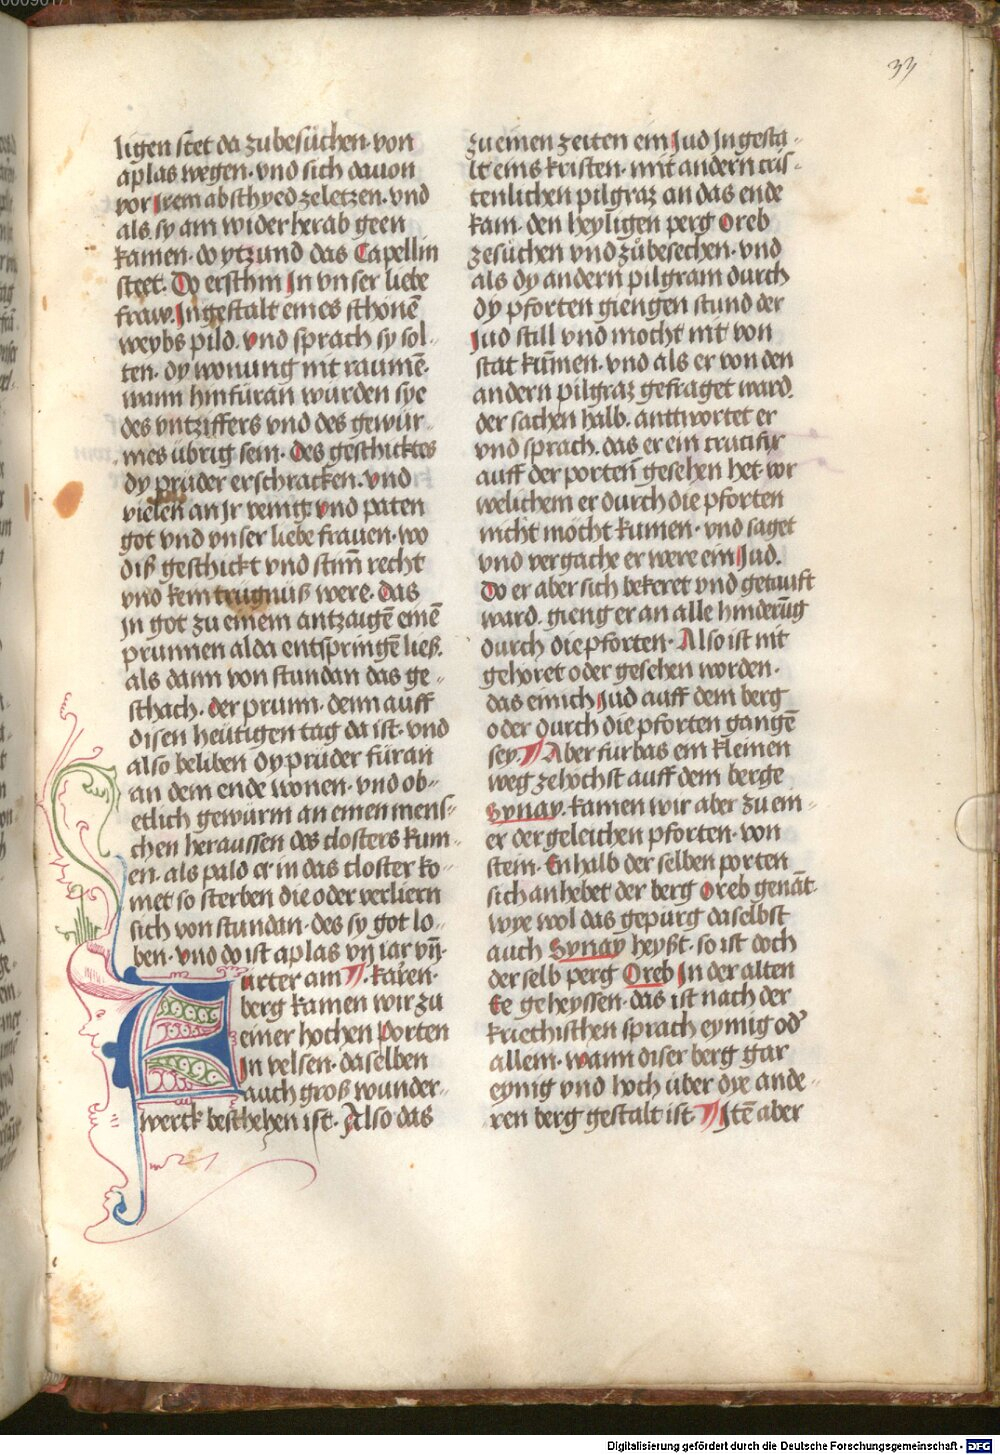 33
ligen stet da zubesuchen. von
aplas wegen. vnd sich dauon
vor Irem abschyed zeletzen. vnd
als sy am wider herab geen
kamen. do ytzund das Capellin
steet. Do erschin In vnser liebe
fraw. In gestalt eines schönē
weybs pild. vnd sprach sy sol-
ten. dy wonung nit raumē.
wann hinfüran wurden sye
des vntziffers vnd des gewür-
mes übrig sein. Des geschicktes
dy prüder erschracken. vnd
vielen an Ir venig vnd paten
got vnd vnser liebe frauen. wo
diß geschickt vnd stim̄ recht
vnd kein trügnüß were. Das
In got zu einem antzaugē einē
prunnen alda entspringē ließ.
als dann von stundan das ge-
schach. der prunn. denn auff
disen heütigen tag da ist. vnd
also beliben dy prüder füran
an dem ende wonen. vnd ob-
etlich gewürm an einen mens-
chen heraussen des closters kum-
en. als pald er in das closter ko-
met so sterben die oder verliern
sich von stundan. des sy got lo-
ben. vnd do ist aplas vij iar vn̄.
Furter am ¶. karen.
berg kamen wir zu
einer hochen Porten
In velsen. daselben
auch groß wunder-
werck beschehen ist. Also das
zu einen zeiten ein Jud In gesta-
lt eins kristen. mit andern cris-
tenlichen pilgraz an das ende
kam. den heyligen perg Oreb
zesuchen vnd zůbesechen. vnd
als dy andern pilgram durch
dy pforten giengen stund der
Jud still vnd mocht nit von
stat kūmen. vnd als er von den
andern pilgraz gefraget ward.
der sachen halb. anttwortet er
vnd sprach. das er ein crucifix
auff der porten̄ gesehen het. vor
welichem er durch die pforten
nicht mocht kumen. vnd saget
vnd vergache er were ein Jud.
Do er aber sich bekeret vnd getauft
ward. gieng er an alle hinderūg
durch die pforten. Also ist nit
gehoret oder gesehen worden.
das einich Jud auff dem berg
oder durch die pforten gangē
sey. ¶ Aber fürbas ein kleinen
weg zehöchst auff dem berge
Synay. kamen wir aber zu ein-
er der geleichen pforten. von
stein. Enhalb der selben porten
sich anhebet der berg Oreb genāt.
wye wol das gepurg daselbst
auch Synay heyßt. so ist doch
der selb perg Oreb In der alten
Ee geheyssen. das ist nach der
kriechischen sprach eynig od'
allein. wann diser berg gar
eynig vnd hoch über dye ande-
ren berg gestalt ist. ¶ Itē aber
Digitalisierung gefördert durch die Deutsche Forschungsgemeinschaft - DFG